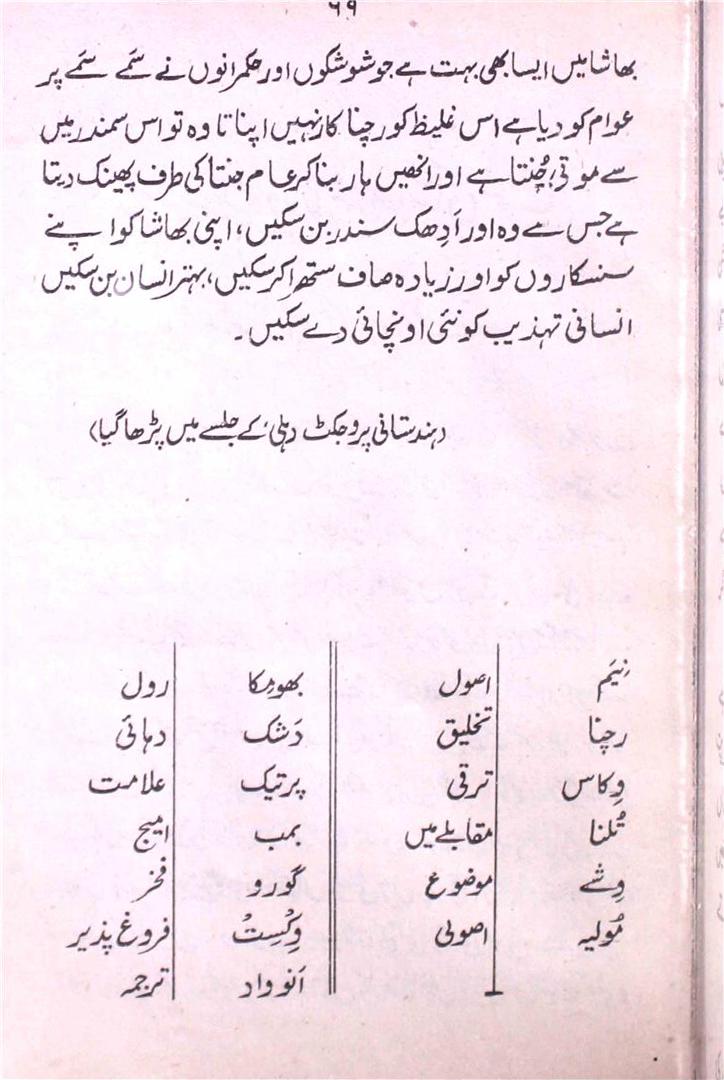 ۶۹
بھاشا میں ایسا بھی بہت ہے جو شوشکوں اور حکمرانوں نے سَمے سَمے پر
عوام کو دیا ہے اس غلیظ کو رچنا کار نہیں اپناتا وہ تو اس سمندر میں
سے موتی چُنتا ہے اور انھیں ہار بنا کر عام جنتا کی طرف پھینک دیتا
ہے جس سے وہ اور اَدِھک سندر بن سکیں، اپنی بھاشا کو اپنے
سنسکاروں کو اور زیادہ صاف ستھرا کر سکیں، بہتر انسان بن سکیں
انسانی تہذیب کو نئی اونچائی دے سکیں۔
(ہندستانی پروجکٹ دہلی کے جلسے میں پڑھا گیا)
نِیَم اصول بھومِکا رول
رچنا تخلیق دَشک دہائی
وِکاس ترقی پرتیک علامت
تُلنا مقابلے میں بمب امیج
وِشے موضوع گورو فخر
مُولیہ اصولی وِکْسِتْ فروغ پذیر
اَنوواد ترجمہ